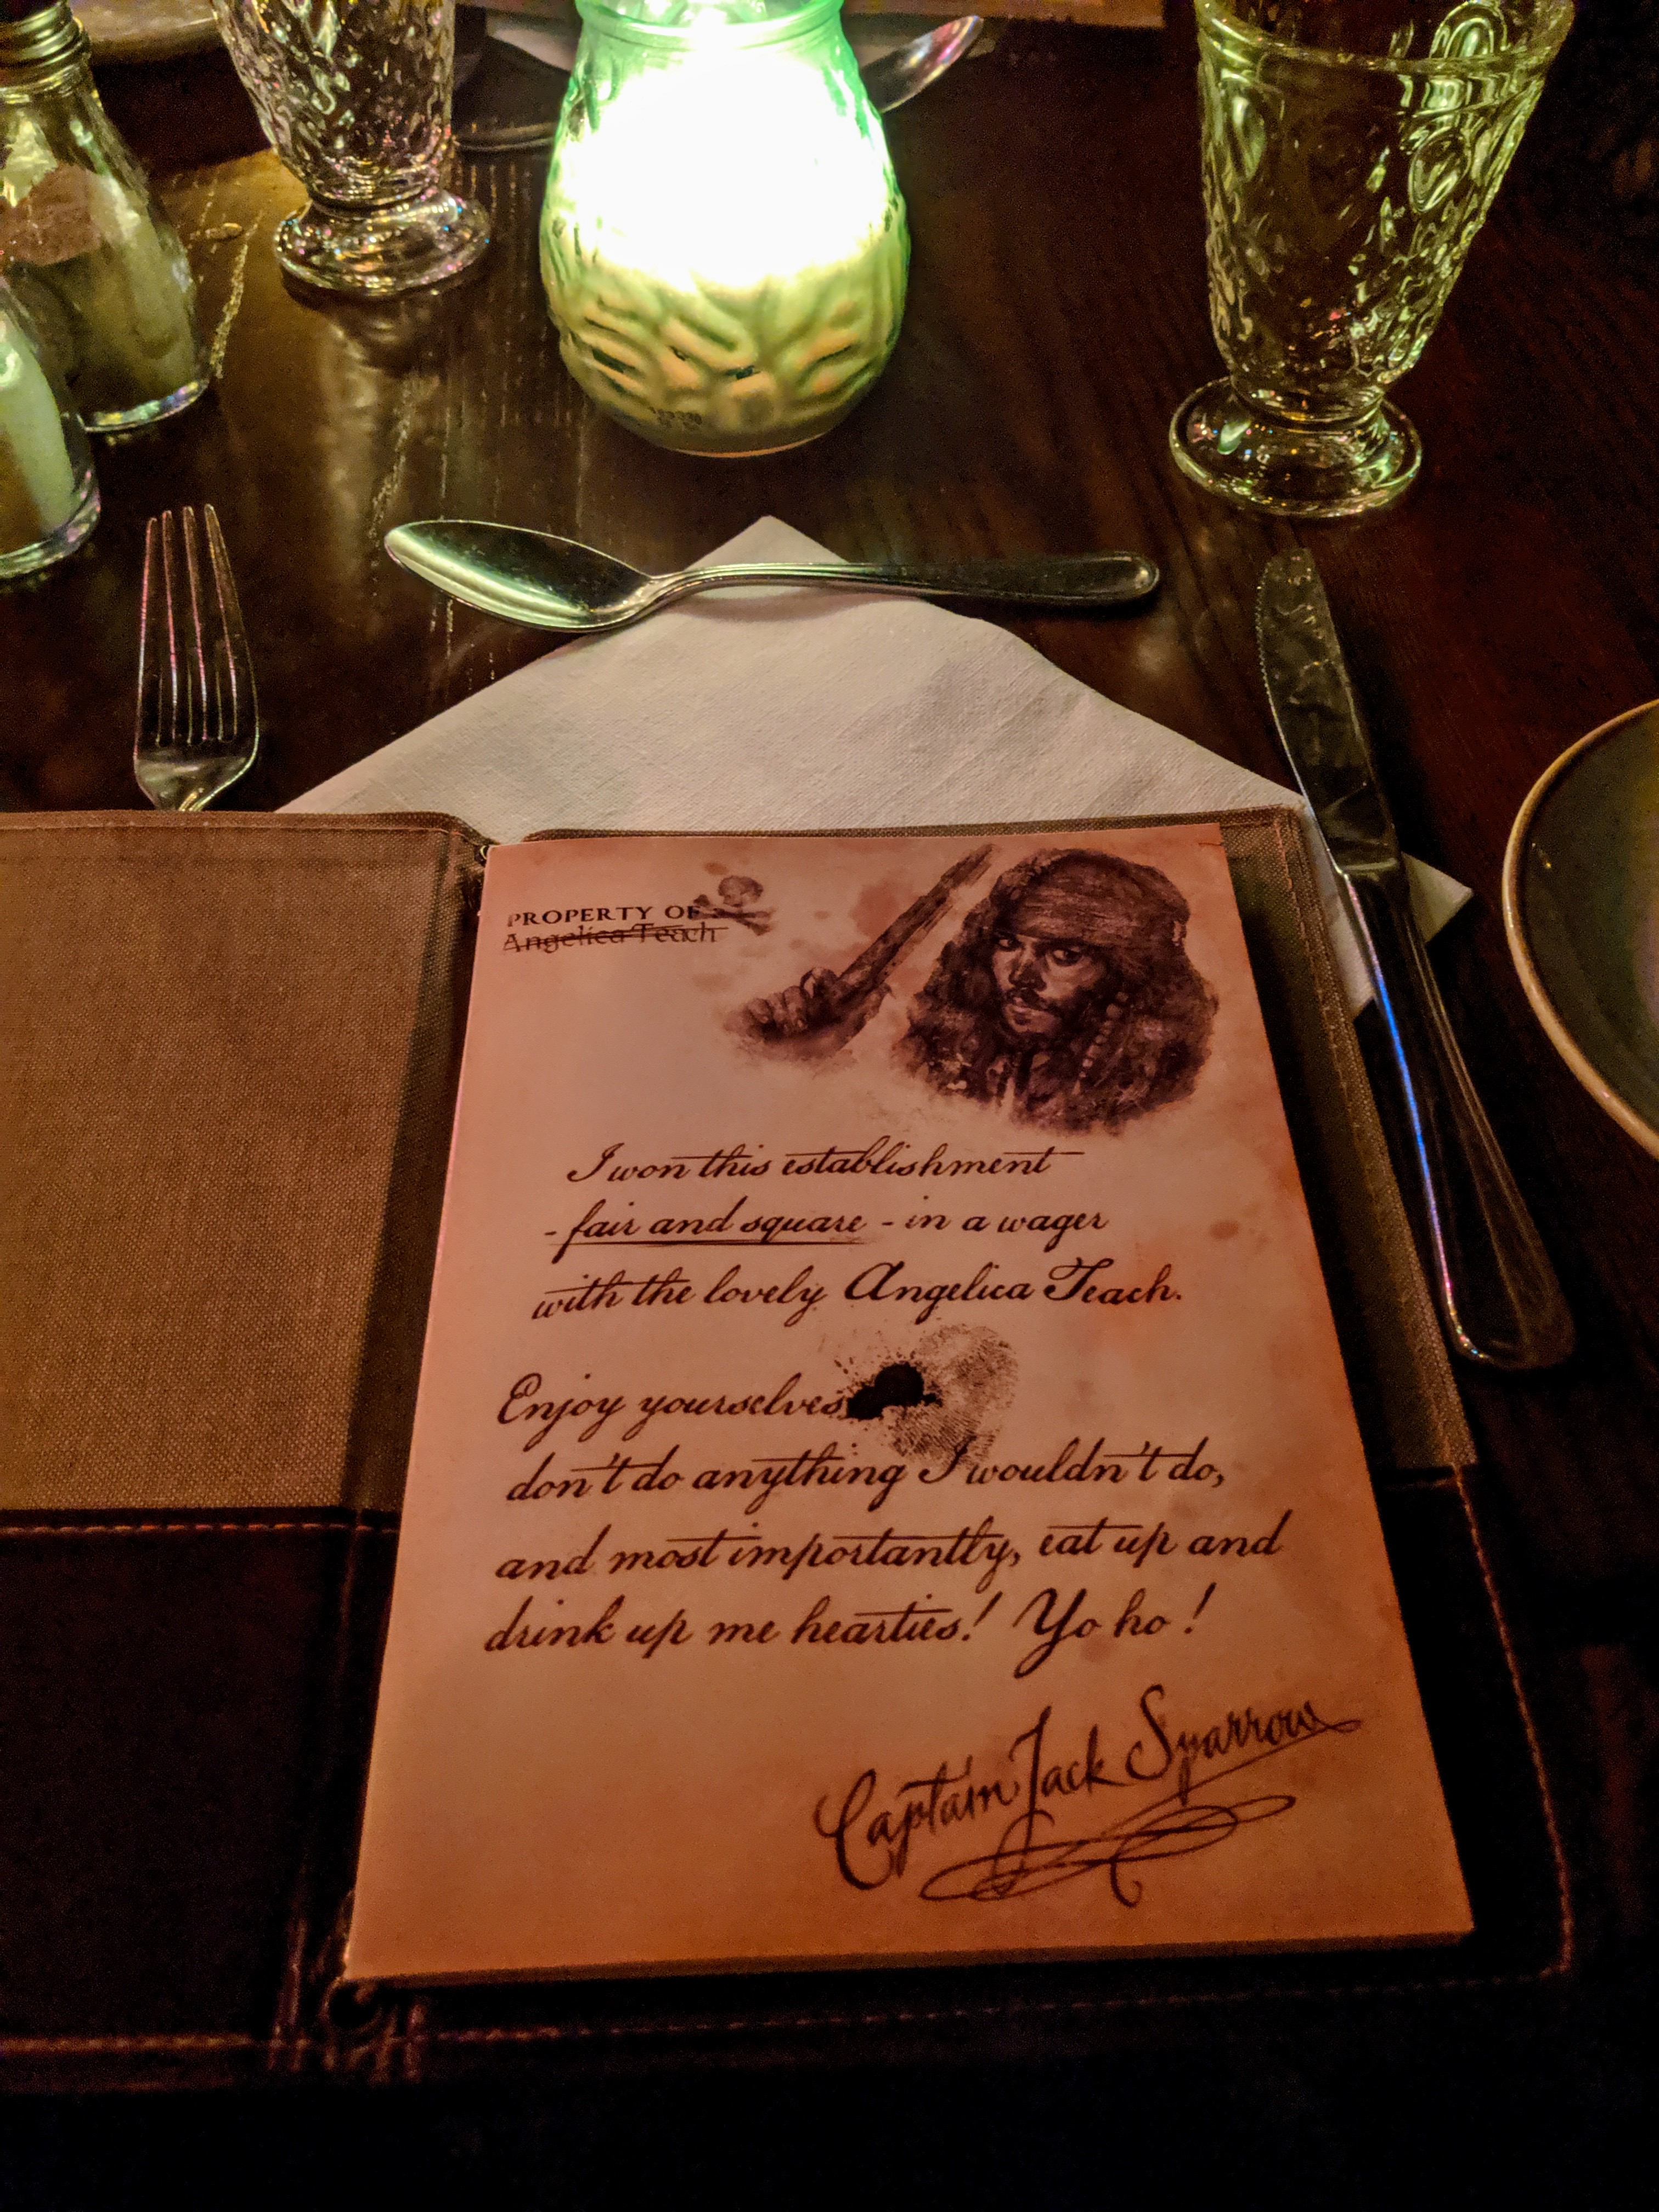 PROPERTY OF
Angelica Teach
I won this establishment
- fair and square - in a wager
with the lovely Angelica Teach.
Enjoy yourselves
don't do anything I wouldn't do,
and most importantly, eat up and
drink up me hearties! Yo ho!
Captain Jack Sparrow